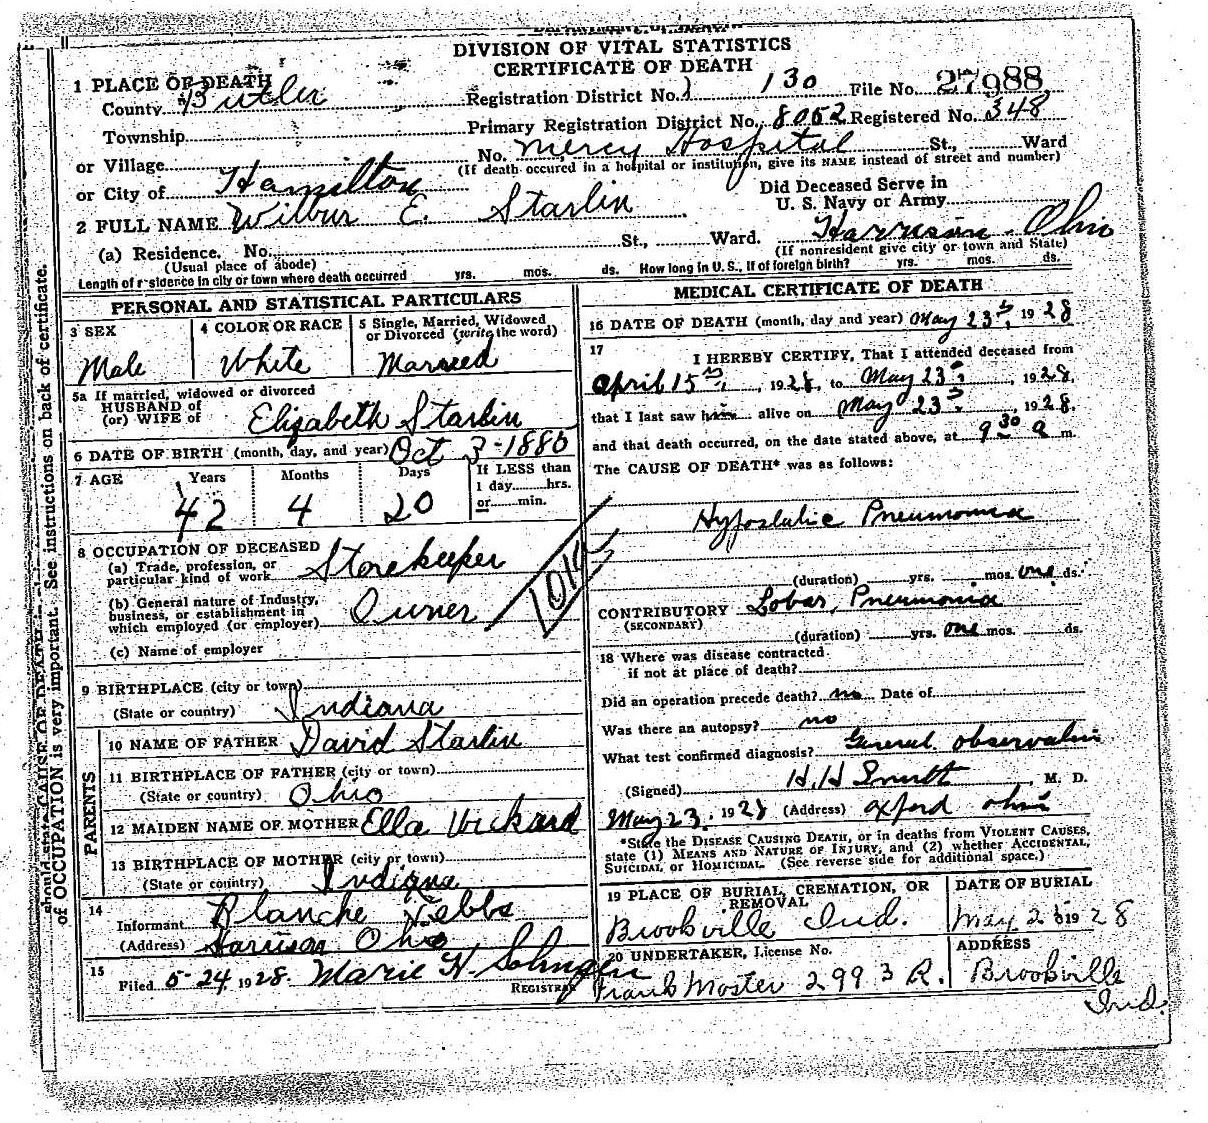 DIVISION OF VITAL STATISTICS
CERTIFICATE OF DEATH
1 PLACE OF DEATH
County Butler Registration District No. 130 File No. 27988
Township Primary Registration District No. 8052 Registered No. 348
or Village No. Mercy Hospital St., Ward
(If death occured in a hospital or institution, give its NAME instead of street and number)
or City of Hamilton
Did Deceased Serve in
U. S. Navy or Army
2 FULL NAME Wilbur E. Starlin
(a) Residence. No. St., Ward. Harrison Ohio
(Usual place of abode) (If nonresident give city or town and State)
Length of residence in city or town where death occurred yrs. mos. ds. How long in U. S., if of foreign birth? yrs. mos. ds.
PERSONAL AND STATISTICAL PARTICULARS
3 SEX
Male
4 COLOR OR RACE
White
5 Single, Married, Widowed
or Divorced (write the word)
Married
5a If married, widowed or divorced
HUSBAND of
(or) WIFE of Elizabeth Starlin
6 DATE OF BIRTH (month, day, and year) Oct 3-1886
7 AGE Years Months Days If LESS than
1 day hrs.
or min.
42 4 20
8 OCCUPATION OF DECEASED
(a) Trade, profession, or
particular kind of work Storekeeper
(b) General nature of Industry,
business, or establishment in
which employed (or employer) Owner
101a
(c) Name of employer
9 BIRTHPLACE (city or town)
(State or country) Indiana
PARENTS
10 NAME OF FATHER David Starlin
11 BIRTHPLACE OF FATHER (city or town)
(State or country) Ohio
12 MAIDEN NAME OF MOTHER Ella Vickard
13 BIRTHPLACE OF MOTHER (city or town)
(State or country) Indiana
14
Informant Blanche Tebbs
(Address) Harrison Ohio
15
Filed 5-24, 1928. Marie H. Sohngen
REGISTRAR
MEDICAL CERTIFICATE OF DEATH
16 DATE OF DEATH (month, day and year) May 23rd, 1928
17
I HEREBY CERTIFY, That I attended deceased from
April 15th, 1928, to May 23rd, 1928,
that I last saw him alive on May 23rd, 1928,
and that death occurred, on the date stated above, at 9 30 a m.
The CAUSE OF DEATH* was as follows:
Hypostatic Pneumonia
(duration) yrs. mos. one ds.
CONTRIBUTORY Lobar Pneumonia
(SECONDARY)
(duration) yrs. one mos. ds.
18 Where was disease contracted
if not at place of death?
Did an operation precede death? no Date of
Was there an autopsy? no
What test confirmed diagnosis? General observation
(Signed) H. H Smith, M. D.
May 23, 1928 (Address) Oxford Ohio
*State the DISEASE CAUSING DEATH, or in deaths from VIOLENT CAUSES,
state (1) MEANS AND NATURE OF INJURY, and (2) whether ACCIDENTAL,
SUICIDAL, or HOMICIDAL. (See reverse side for additional space.)
19 PLACE OF BURIAL, CREMATION, OR
REMOVAL
Brookville Ind.
DATE OF BURIAL
May 25 1928
20 UNDERTAKER, License No.
Frank Moster 2993 A.
ADDRESS
Brookville
Ind.
of OCCUPATION is very important. See instructions on back of certificate.